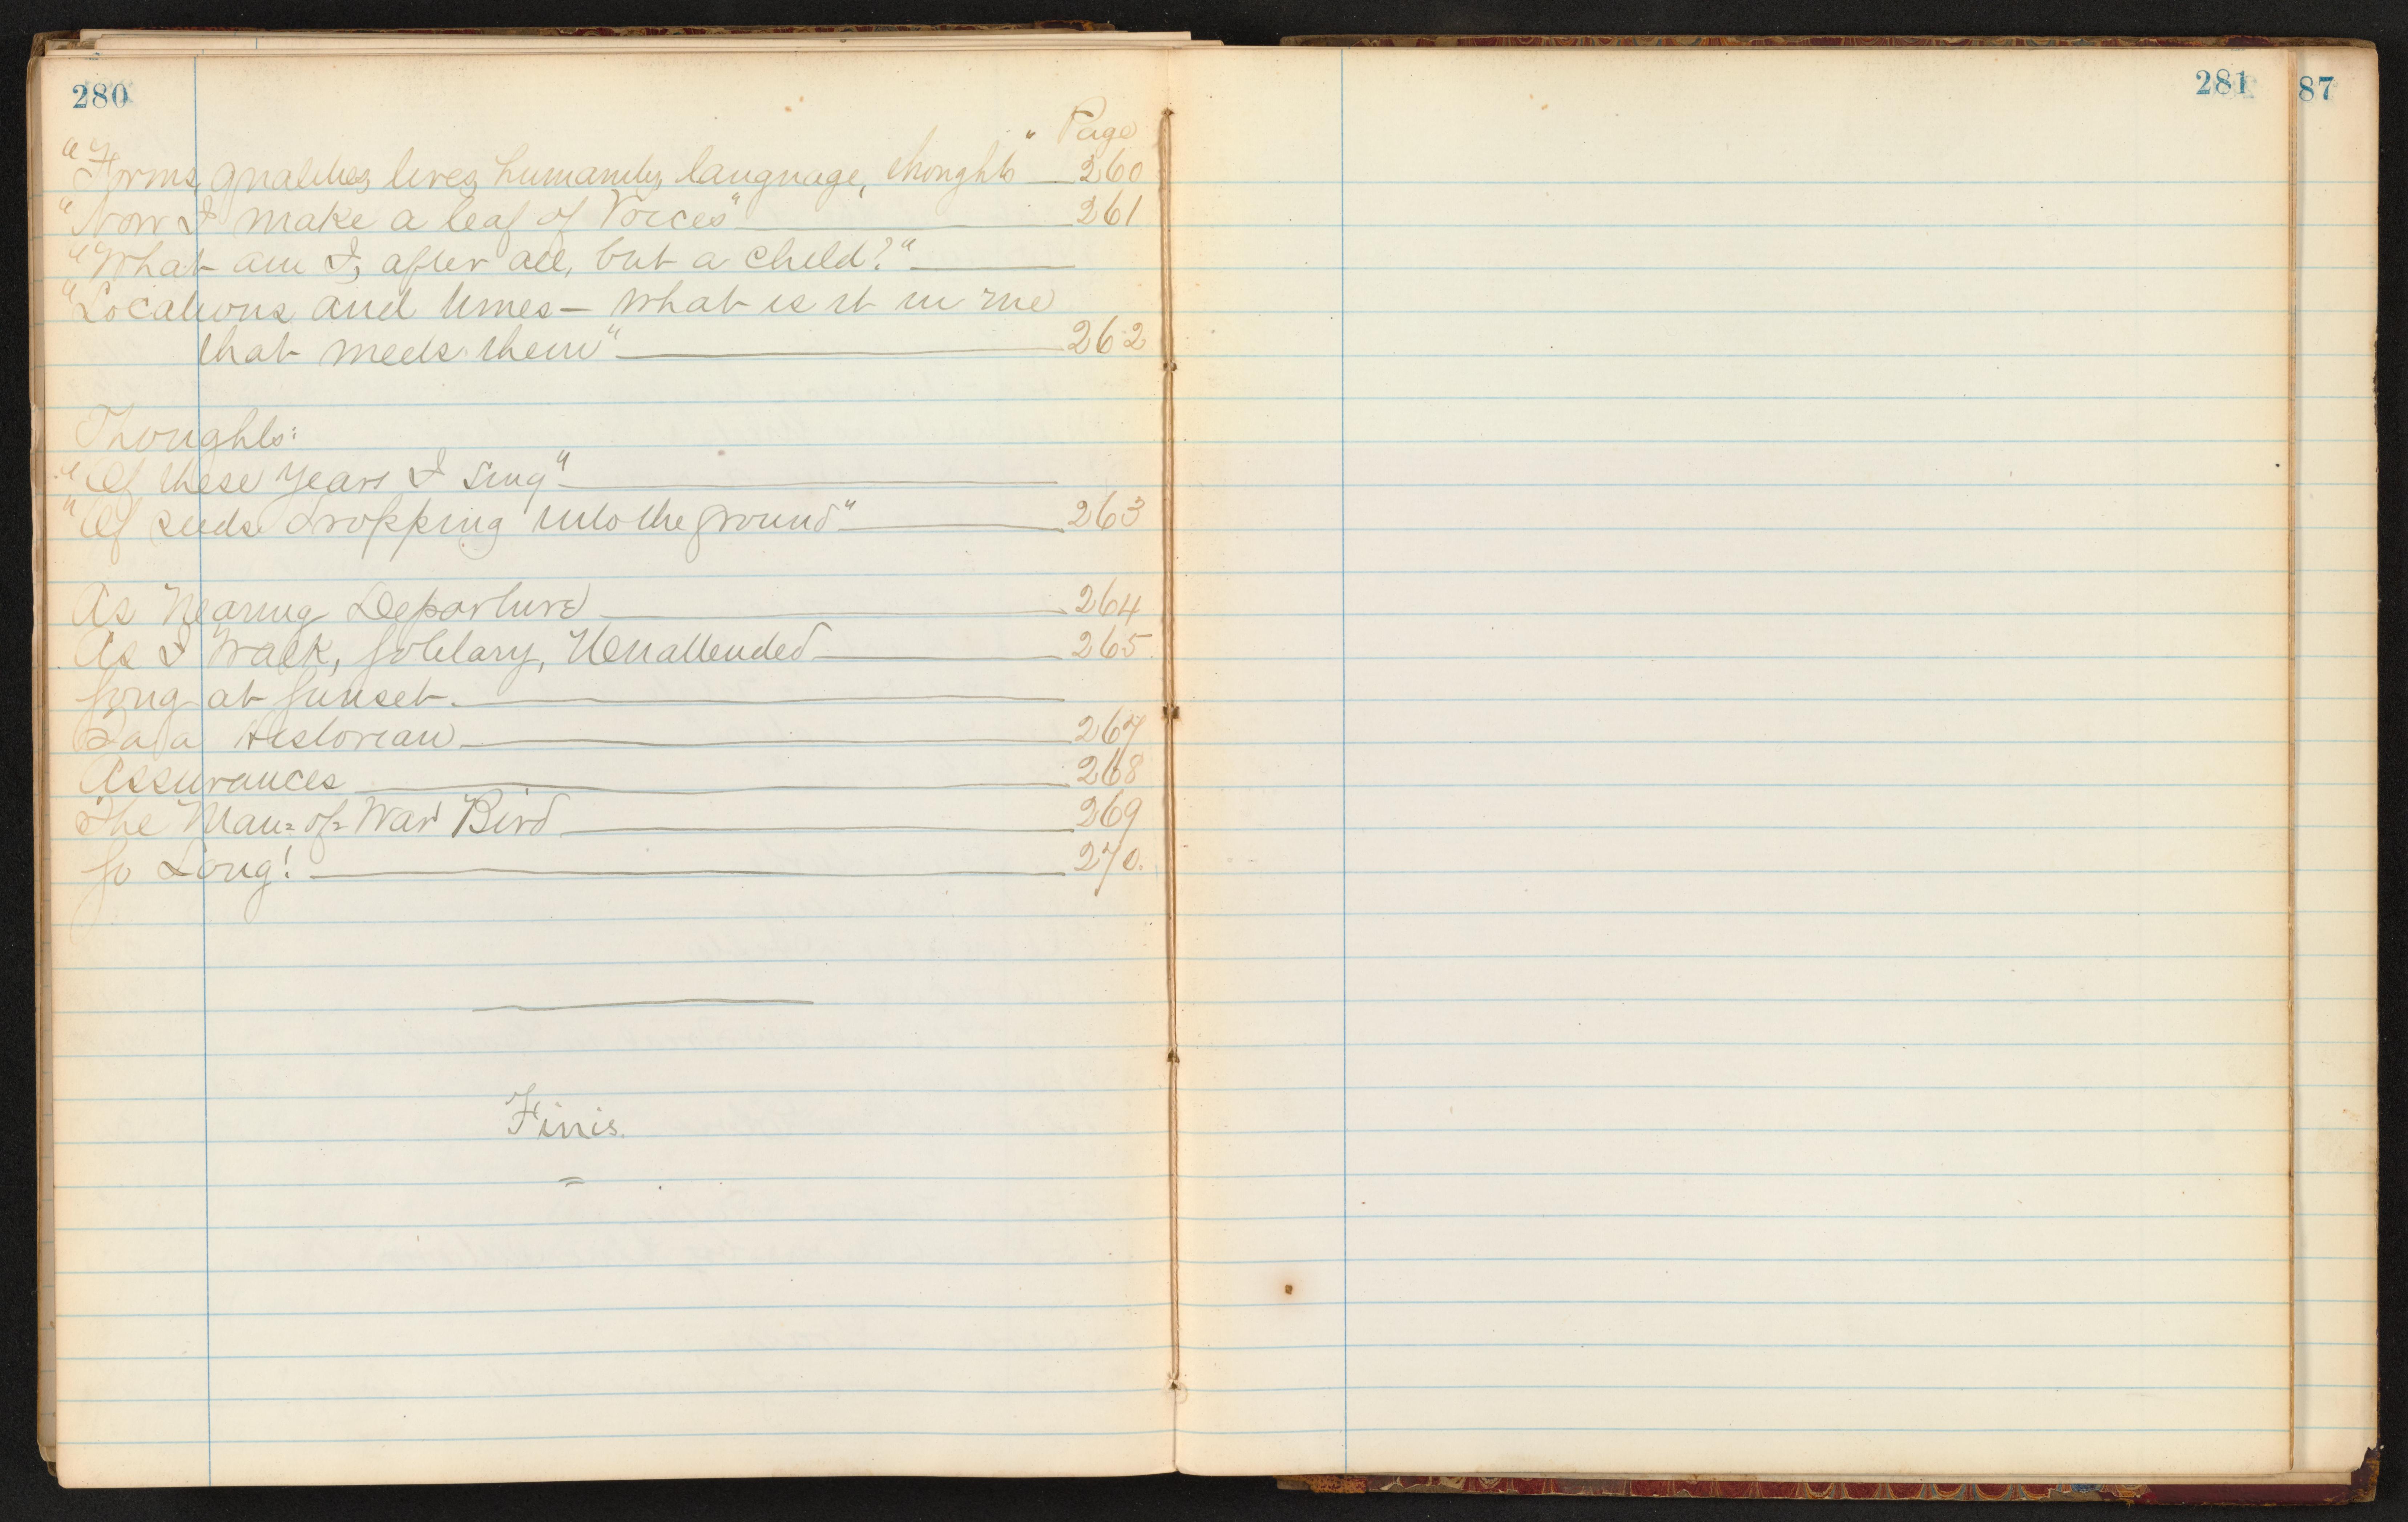 280
Page
"Forms, qualities, lives, humanity, language, thoughts" 260
"Now I make a leaf of Voices" 261
"What am I, after all, but a child?"
"Locations and times – What is it in me
that meets them" 262
Thoughts:
"Of these years I sing"
"Of seeds dropping into the ground" 263
As Nearing Departure 264
As I Walk, Solitary, Unattended 265
Song at Sunset.
To a Historian 267
Assurances 268
The Man=of=War Bird 269
So Long! 270.
Finis.
281
87